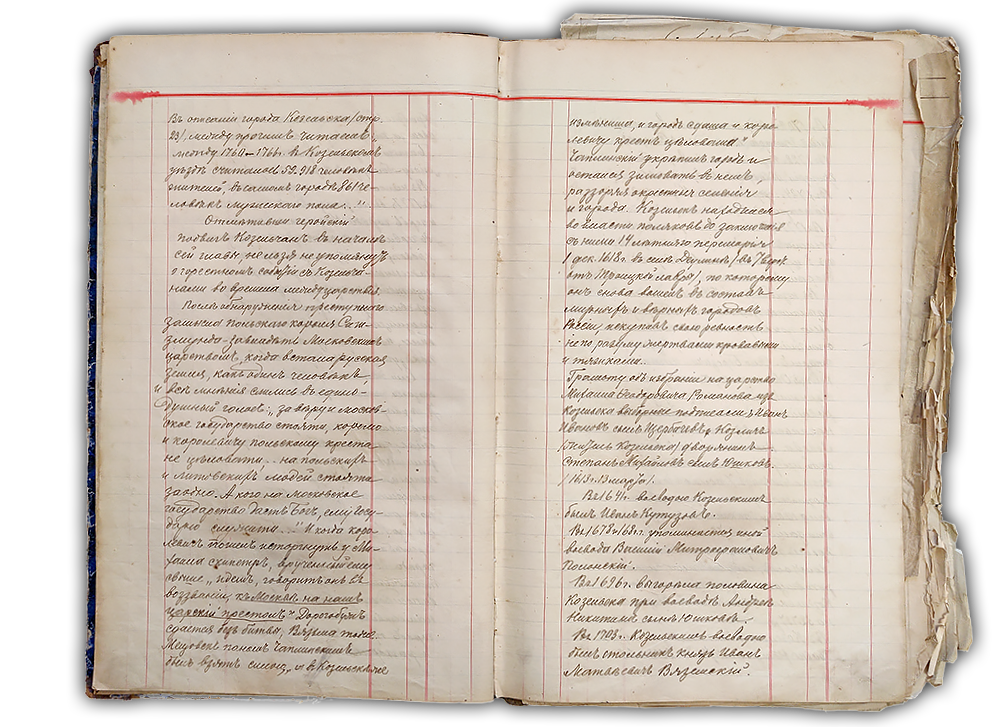 Въ описанiи города Козельска /стр.
23/, между прочимъ читаемъ:
„между 1760–1766г. въ Козельскомъ
уѣздѣ считалось 59.918 человѣкъ
жителей, въ самомъ городѣ 861 че-
ловѣкъ мужескаго пола..."
Отмѣтивши геройскiй
подвигъ Козельчанъ въ началѣ
сей главы, нельзя не упомянуть
о горестномъ событiи съ Козельча-
нами во времена междуцарствiя.
Послѣ обнаруженiя преступнаго
замысла польскаго короля Сиги-
змунда завладѣть Московскимъ
царствомъ, когда встала русская
земля, какъ одинъ человѣкъ,
и всѣ мнѣнiя слились въ едино-
душный голосъ: „за вѣру и москов-
ское государство стояти, королю
и королевичу польскому креста
не цѣловати... на польскихъ
и литовскихъ людей стояти
заодно. А кого на Московское
государство дастъ Богъ, ему госу-
дарю служити..." И когда коро-
левичъ пошелъ исторгнуть у Ми-
хаила скипетръ, врученный ему
„идемъ, говоритъ онъ въ
воззванiи, къ Москвѣ на нашъ
царскiй престолъ" Дорогобужъ
сдается безъ битвы, Вязьма тоже.
Мещовскъ паномъ Чаплинскимъ
былъ взятъ силою, „а въ Козельскѣ же
измѣниша, и городъ сдаша и коро-
левичу крестъ цѣловаша"
Чаплинскiй укрѣпилъ городъ и
остался зимовать въ немъ,
раззоряя окрестныя селенiя
и города. Козельскъ находился
во власти поляковъ до заключенiя
съ ними 14 лѣтняго перемирiя
1 дек. 1618г. въ селѣ Деулинѣ /въ
отъ Троицкой лавры/, по которому
онъ снова вошелъ въ составъ
мирныхъ и вѣрныхъ городовъ
Россiи, искупивъ свою ревность
не по разуму жертвами кровавыми
и тяжкими.
Грамоту объ избранiи на царство
Михаила Ѳеодоровича Романова изъ
Козельска выборные подписали: Иванъ
Ивановъ сынъ Щербачевъ, Козличъ
/житель Козельска/ дворянинъ
Степанъ Михайловъ сынъ Юшковъ.
/1613г. 13 марта/.
Въ 1641г. воеводою Козельскимъ
былъ Иванъ Кутузовъ.
Въ 1678г. упоминается
воевода Василiй Митрофановичъ
Полонскiй.
Въ 1696г. выгорѣла половина
Козельска при воеводѣ Андреѣ
Никитинѣ сынѣ Юшковѣ.
Въ 1703г. Козельскимъ воеводою
былъ стольникъ князь Иванъ
Матвѣевичъ Вяземскiй.